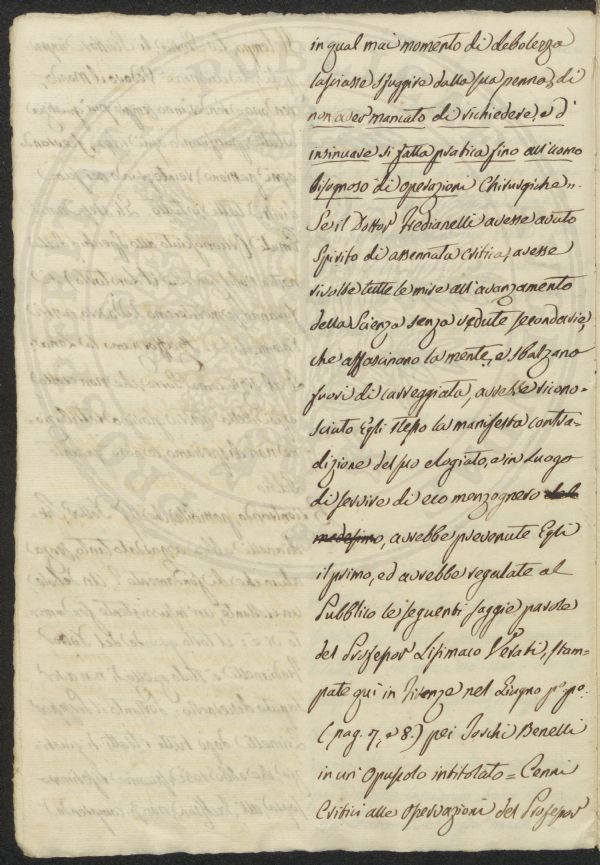 in qual mai momento di debolezza
lasciasse sfuggire dalla sua penna, di
non aver mancato di richiedere, e d'
insinuare sì fatta pratica fino all'uomo
bisognoso di operazioni Chirurgiche„.
Se il Dottor Fedianelli avesse avuto
Spirito di assennata critica, avesse
rivolte tutte le mire all'avanzamento
della Scienza senza vedute secondarie,
che affascinano la mente, e sbalzano
fuori di carreggiata, avrebbe ricono-
sciuto Egli stesso la manifesta contra-
dizione del suo elogiato, e in luogo
di servire di eco menzognero del
medesimo, avrebbe prevenute Egli
il primo, ed avrebbe regalate al
Pubblico le seguenti saggie parole
del Professor Lisimaco Verati, stam=
pate qui in Firenze nel Giugno p.º p.º
(pag. 7, e 8.) pei Torchi Benelli
in un Opuscolo intitolato = Cenni
Critici alle Operazioni del Professor